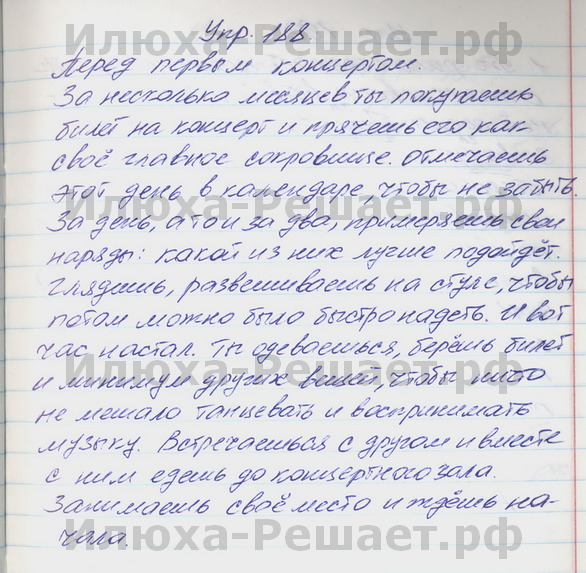 Упр. 188.
Перед первым концертом.
За несколько месяцев ты покупаешь
билет на концерт и прячешь его как
своё главное сокровище. Отмечаешь
этот день в календаре, чтобы не забыть.
За день, а то и за два, примеряешь свои
наряды: какой из них лучше подойдёт.
Глядишь, развешиваешь на стуле, чтобы
потом можно было быстро надеть. И вот
час настал. Ты одеваешься, берёшь билет
и минимум других вещей, чтобы ничто
не мешало танцевать и воспринимать
музыку. Встречаешься с другом и вместе
с ним едешь до концертного зала.
Занимаешь своё место и ждёшь на-
чала.
Илюха-Решает.рф
Илюха-Решает.рф
Илюха-Решает.рф
Илюха-Решает.рф
Илюха-Решает.рф
Илюха-Решает.рф